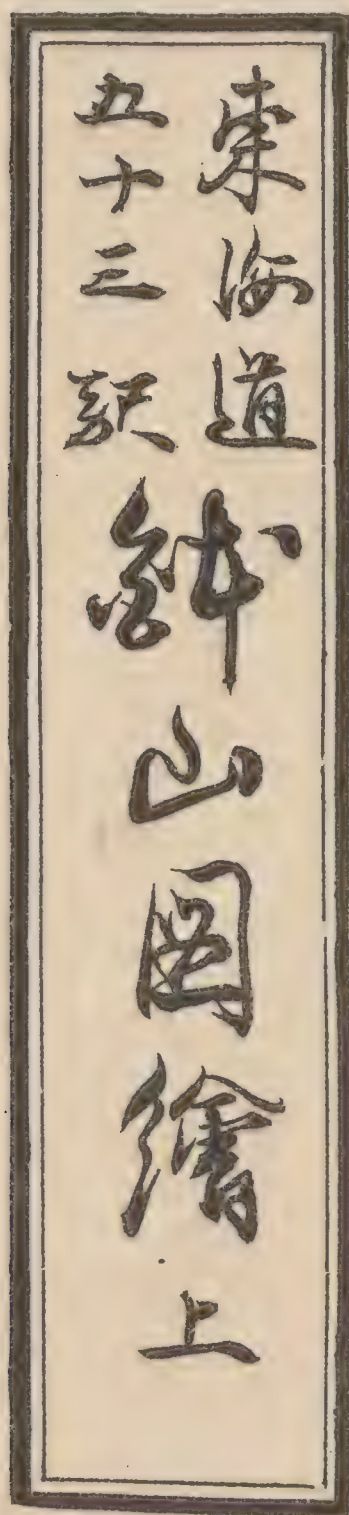 東海道
五十三駅
鉢山圖繪 上